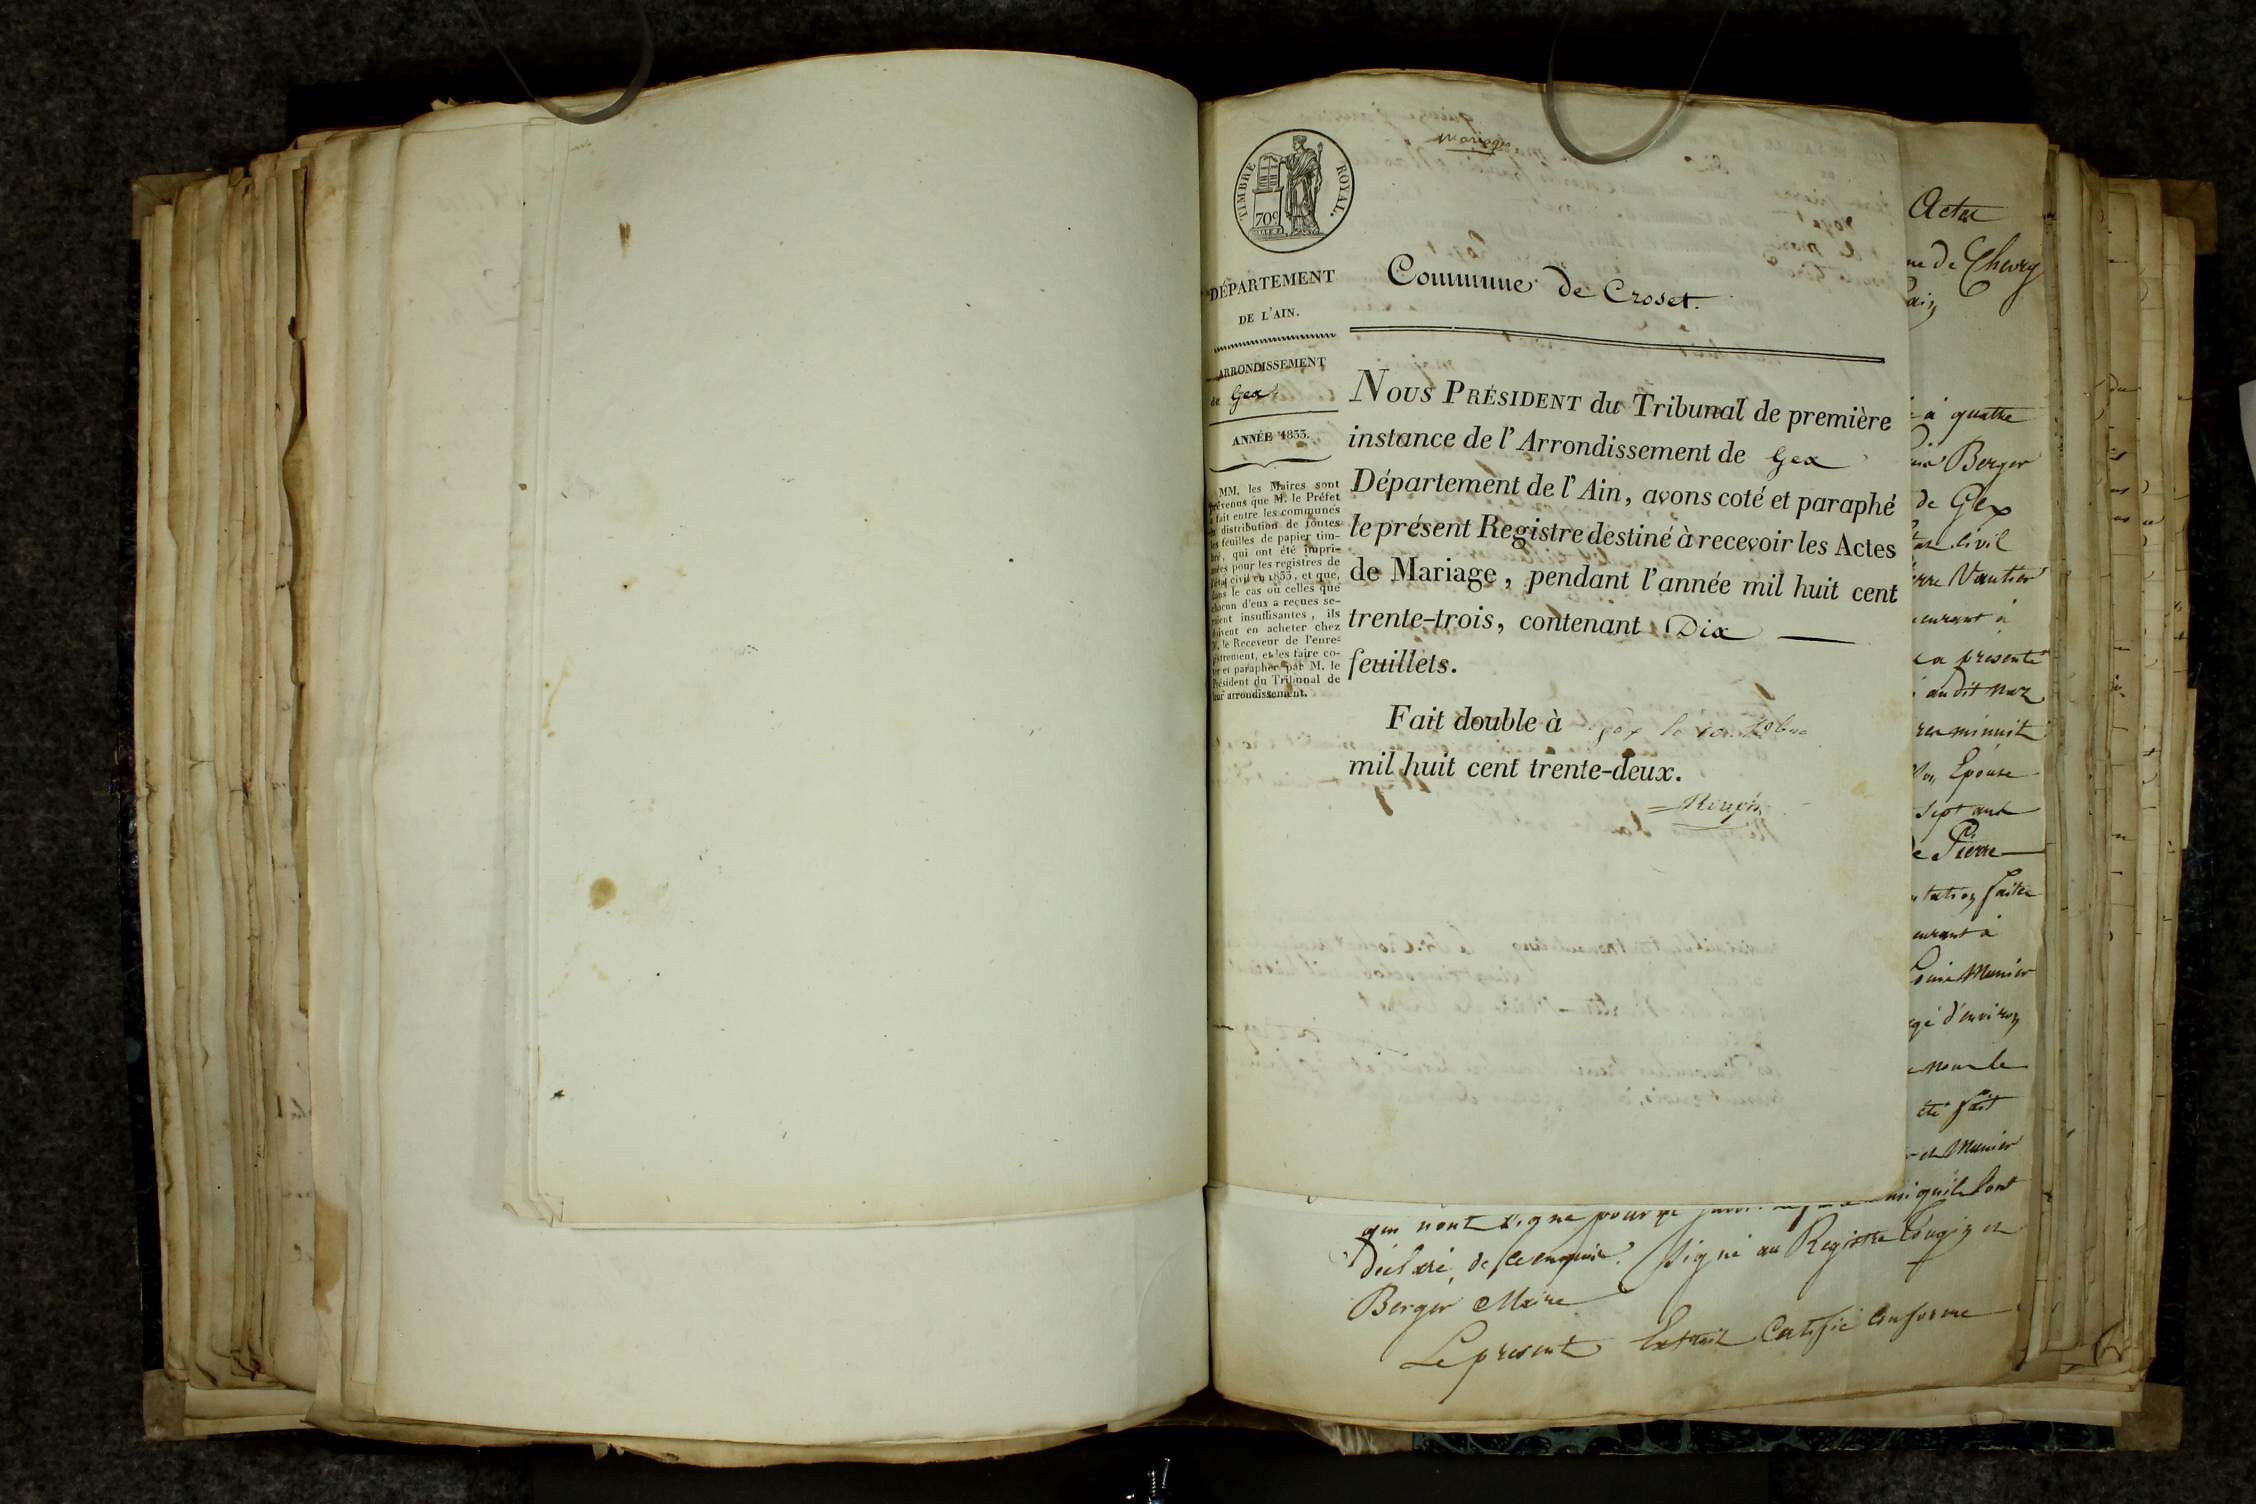 mariages
TIMBRE ROYAL.
70c
DÉPARTEMENT
DE L'AIN.
ARRONDISSEMENT
de Gex
ANNÉE 1833.
MM. les Maires sont
prévenus que M. le Préfet
a fait entre les communes
la distribution de toutes
les feuilles de papier tim-
bré, qui ont été impri-
mées pour les registres de
l'état civil en 1833, et que,
dans le cas où celles que
chacun d'eux a reçues se-
raient insuffisantes, ils
doivent en acheter chez
M. le Receveur de l'enre-
gistrement, et les faire co-
ter et parapher par M. le
Président du Tribunal de
leur arrondissement.
Commune de Croset.
NOUS PRÉSIDENT du Tribunal de première
instance de l'Arrondissement de Gex
Département de l'Ain, avons coté et paraphé
le présent Registre destiné à recevoir les Actes
de Mariage, pendant l'année mil huit cent
trente-trois, contenant Dix
feuillets.
Fait double à Gex le
mil huit cent trente-deux.
Acte
ne de Chevry
à quatre
Berger
de Gex
civil
erre Vautier
eurant à
a presenté
au dit
minuit
Epouse
sept ans
de Pierre
ntation faite
eurant à
Louis Munier
gé d'environ
nous le
été fait
et Munier
qu'ils l'ont
qui n'ont signé pour ne
déclaré, de ce enquis. Signé au Registre et
Berger Maire
Le present Extrait Certifié Conforme